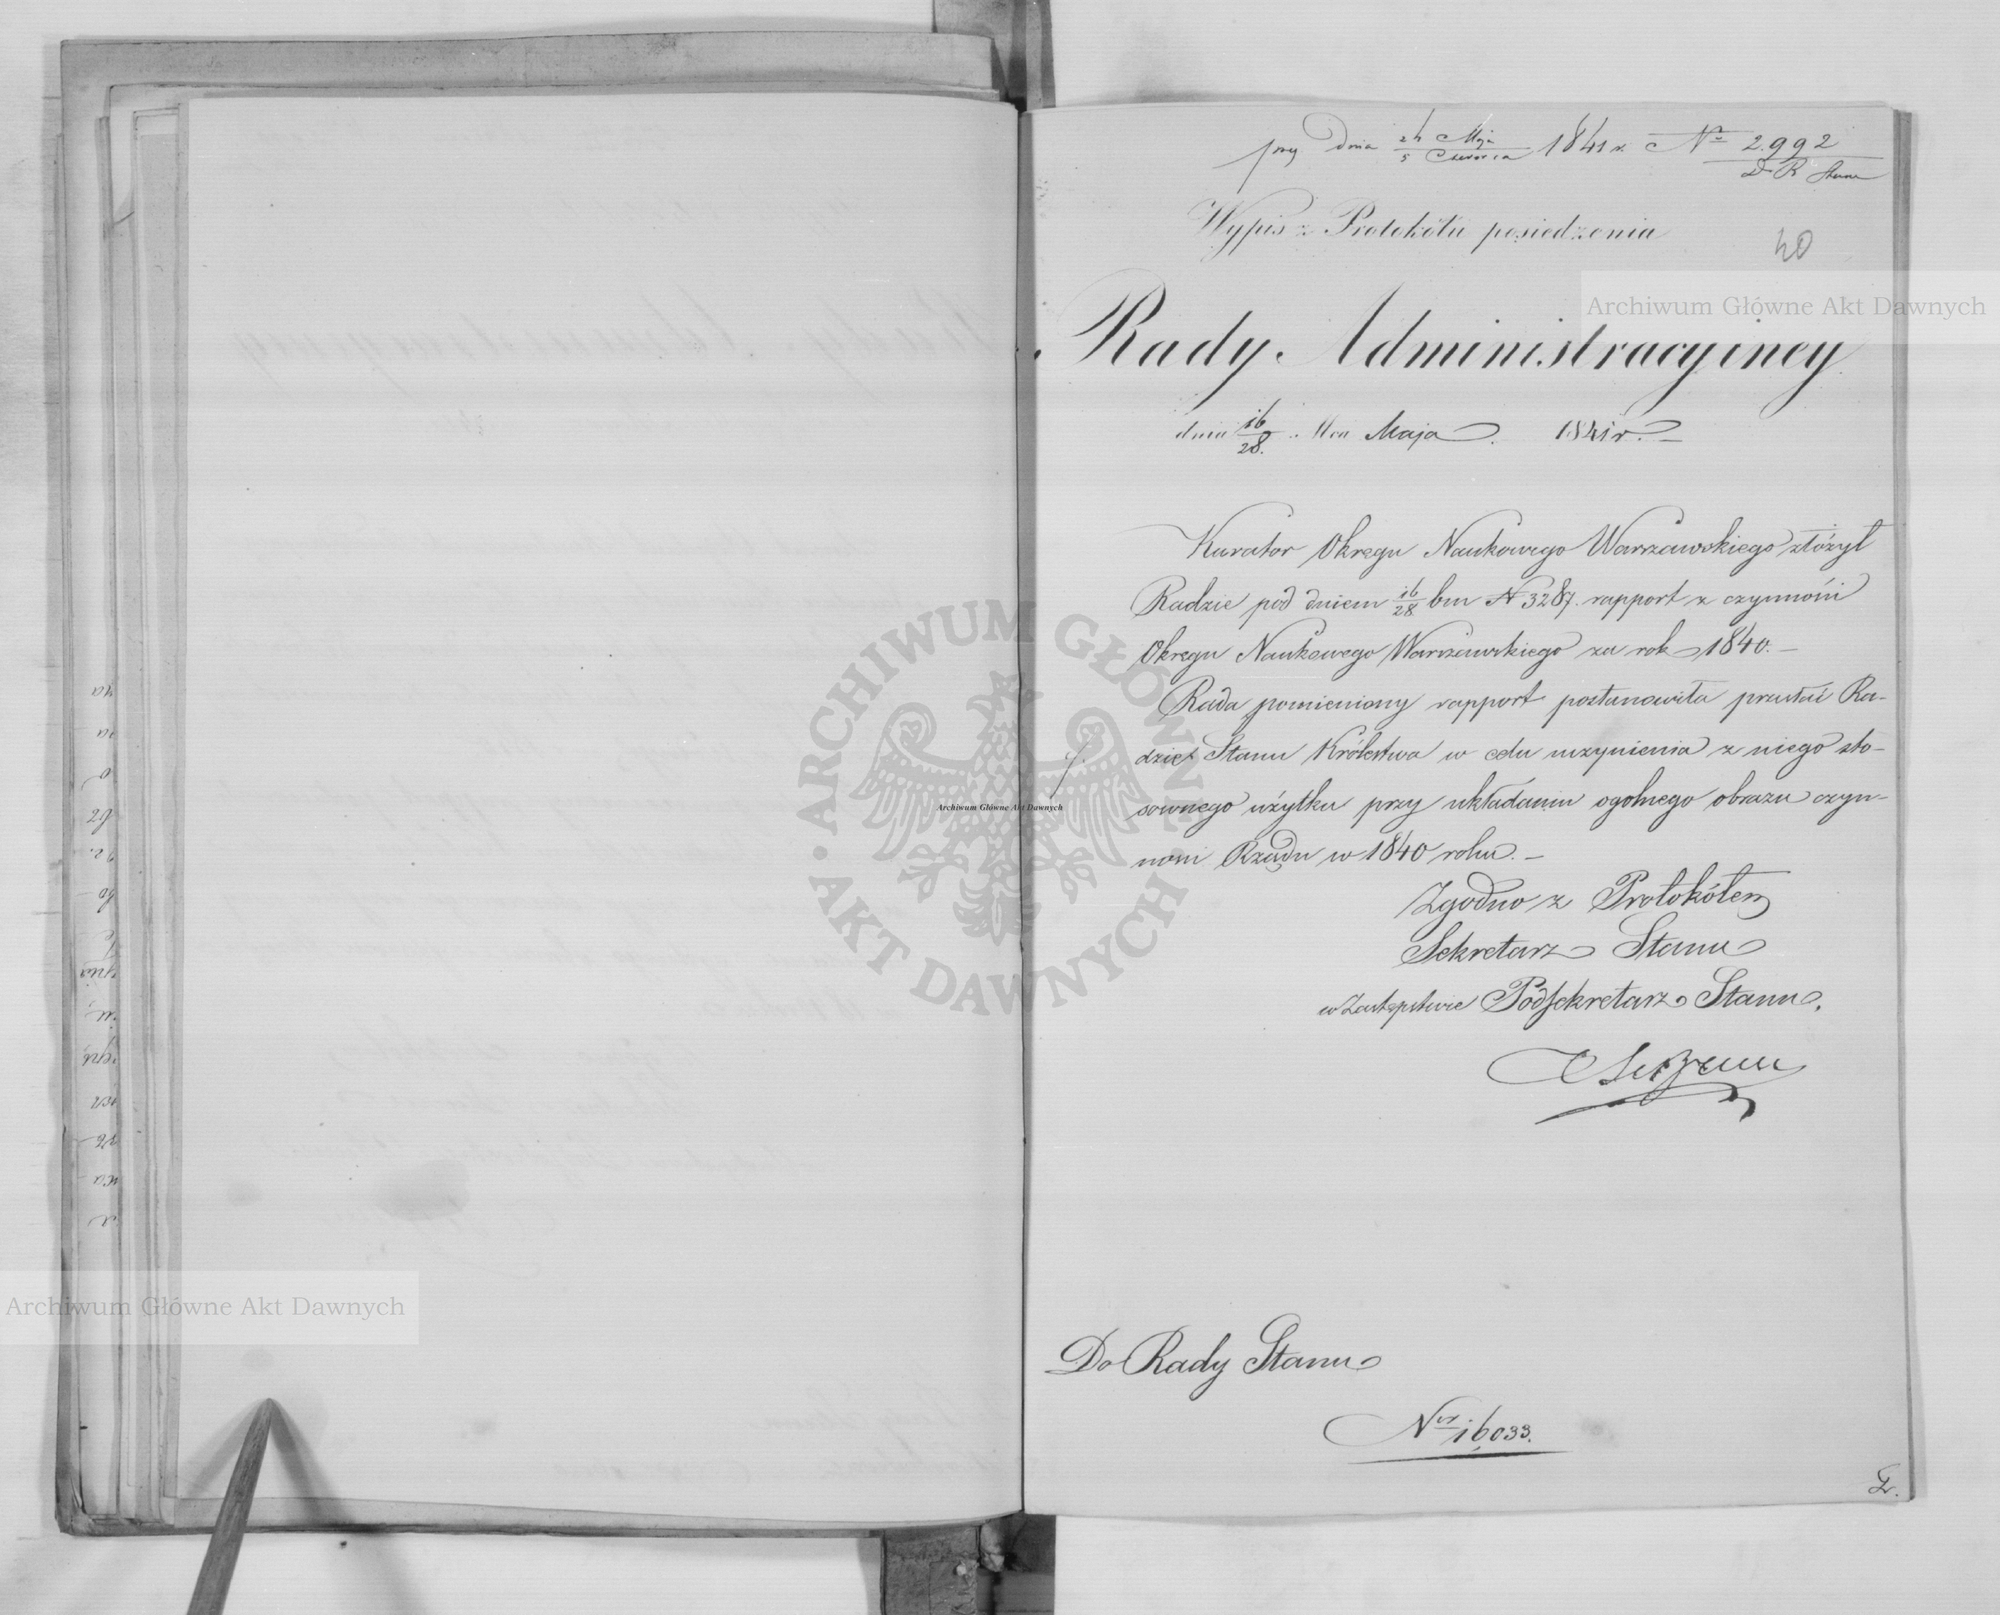 prez Dnia 24 Maja / 5 Czerwca 1841 r. Nr 2.992
D. R. Stanu
Wypis z Protokółu posiedzenia
40
Rady Administracyiney
dnia 16/28. Mca Maja 1841 r.
Kurator Okręgu Naukowego Warszawskiego złożył
Radzie pod dniem 16/28 bm N 3287. rapport z czynności
Okręgu Naukowego Warszawskiego za rok 1840.
Rada pomieniony rapport postanowiła przesłać Ra-
dzie Stanu Królestwa w celu uczynienia z niego sto-
sownego użytku przy układaniu ogolnego obrazu czyn-
ności Rządu w 1840 roku.
Zgodno z Protokółem
Sekretarz Stanu
w Zastępstwie Podsekretarz Stanu.
Do Rady Stanu
Nr 16033.
Archiwum Główne Akt Dawnych
Archiwum Główne Akt Dawnych
Archiwum Główne Akt Dawnych
ARCHIWUM GŁÓWNE · AKT DAWNYCH ·